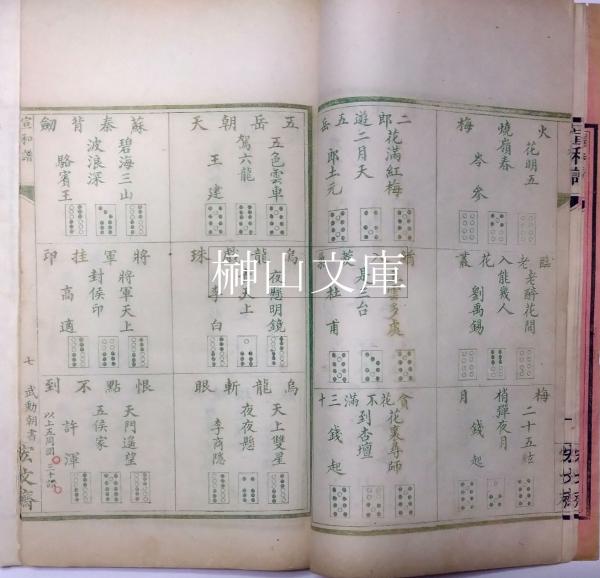 火
梅
花明五
燒嶺春
岑參
臨老
花叢
老醉花間
入能幾人
劉禹錫
梅
月
二十五絃
梢彈夜月
錢起
二郎
遊五岳
花滿紅梅
二月天
郎士元
杜甫
貪花不滿三十
花裏尋師
到杏壇
錢起
五岳朝天
五色雲車
駕六龍
王建
烏龍
珠
夜懸明鏡
天上
李白
烏龍斬眼
天上雙星
夜夜懸
李商隱
蘇秦背劍
碧海三山
波浪深
駱賓王
將軍挂印
將軍天上
封侯印
高適
恨點不到
天門遙望
五侯家
許渾
以上五周圓
宣和譜
七
武勳朝書
宏文齋
宣和譜
榊山文庫